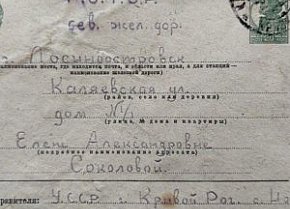 сев. жел. дор.
Лосиноостровск
наименование места, где находится почта, и области или края, а для станций —
наименование железной дороги)
Каляевская ул.
(район, село или деревня)
дом №
(улица, № дома и квартиры)
Елене Александровне
(подробное наименование адресата)
Соколовой.
УССР г. Кривой Рог.